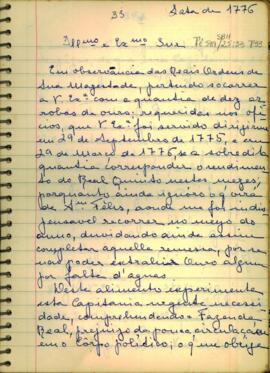 33
Data de 1776
Illmo e Exmo Snr:
Em observância das Reais Ordens de
Sua Magestade, pertendo socorrer
a V. Exª com a quantia de dez ar-
robas de ouro, requeridas nos ofi-
cios, que V. Exª foi servido dirigirme
em 29 de Septembro de 1775, e em
29 de Março de 1776, se a sobredita
quantia corresponder o rendimen-
to do Real Quinto nestes mezes,
porquanto ainda ignoro o q. virá
de S. Felis, aonde me foi indis-
pensavel recorrer no meyo do
anno, duvidando ainda assim
completar aquella remessa, por se
não poder extrahir Ouro algum
por falta d'agoas.
Deste alimento experimenta
esta Capitania urgente necessi-
dade, comprehendendo a Fazenda
Real, prejuizo da pouca circulação
em o Corpo politico; o que obriga